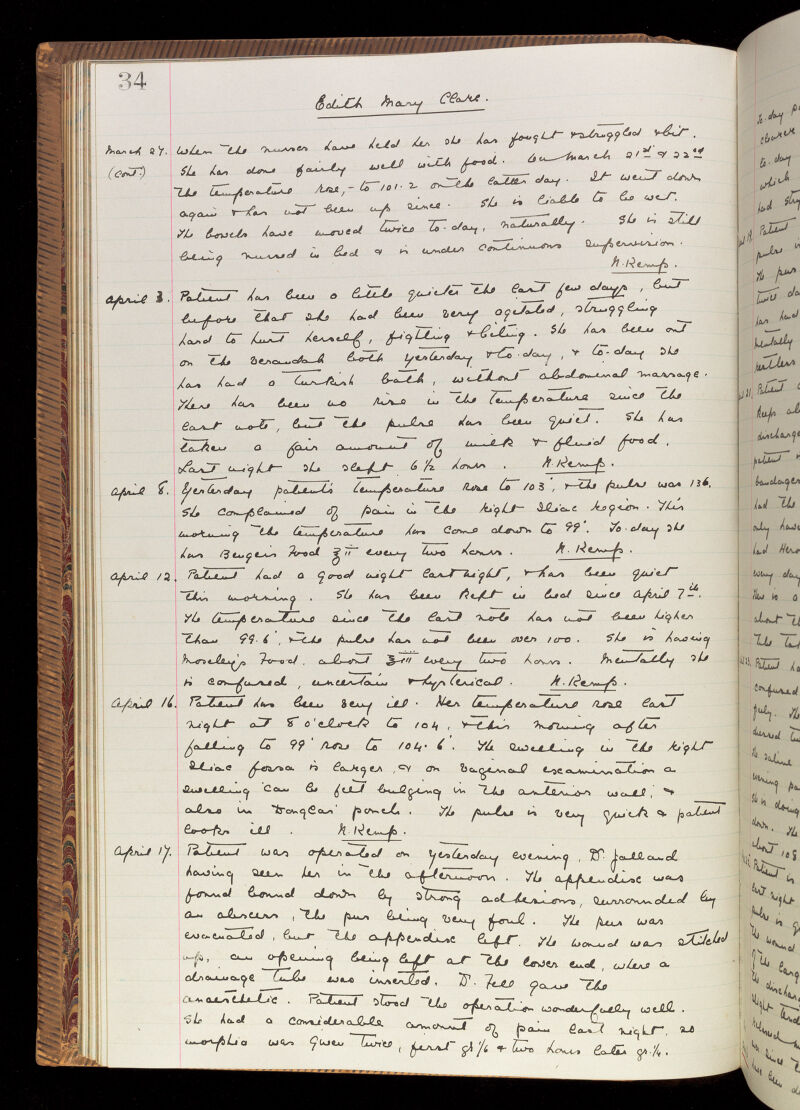 34
Edith Mary Clare.
March 27. When the nurses have held her she has fought & struggled & bit.
(Cont.) She has done fairly well with food. On March 21st & 22nd
the temperature rose, - to 101.2 on the latter day. It went down
again & has not been up since. She is liable to be wet.
The bowels have moved twice to-day, naturally. She is still
being nursed in bed & is under continuous supervision.
N. Kemp.
April 3. Patient has been a little quieter the last few days, but
before that she had been very agitated, struggling
hard to hurt herself, fighting & biting. She has been out
on the verandah both yesterday & to-day, & to-day she
has had a turkish bath, without abdominal massage.
There has been no rise in the temperature since the
last note, but the pulse has been quiet. She has
taken a fair amount of milk & fluid food.
Last night she slept 6 1/2 hours. N. Kemp.
April 8. Yesterday patient's temperature rose to 103°, & the pulse was 136.
She complained of pain in the right Iliac region. This
morning the temperature has come down to 99°. To-day she
has Benger's Food ℥ii every two hours. N. Kemp.
April 12. Patient had a good night last night, & has been quiet
this morning. She has been kept in bed since April 7th.
The temperature since the last note has not been higher
than 99.6°, & the pulse has not been over 100. She is having
Moseley's Food about ℥iii every two hours. Mentally she
is confused, uncertain & hysterical. N. Kemp.
April 16. Patient has been very ill. Her temperature rose last
night at 8 o'clock to 104, & this morning after
falling to 99° rose to 104.6°. The swelling in the right
Iliac fossa is larger, & on vaginal examination a
swelling can be felt bulging in the anterior wall, &
also in Douglas' pouch. The pulse is very quick & patient
looks ill. N. Kemp.
April 17. Patient was operated on yesterday evening, Dr. Jalland
having seen her in the afternoon. The appendix was
found bound down by strong adhesions, surrounded by
an abscess, the pus being very foul. The pus was
evacuated, but the appendix left. The wound was stitched
up, an opening being left at the lower end, where a
drainage tube was inserted. Dr. Fell gave the
anaesthetic. Patient stood the operation wonderfully well.
She had a considerable amount of pain last night, so
morphia was given twice, first gr 1/6 & two hours later gr. 1/4.
To-day
to-day
which
Patient
pulse
mentally
restless
Patient
discharge
patient
bandages
had the
only have
every day
about
Patient
confused
saline
evening
down. The
about 108
Patient is
last night
The wound